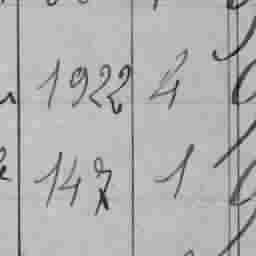 1922 4
147 1